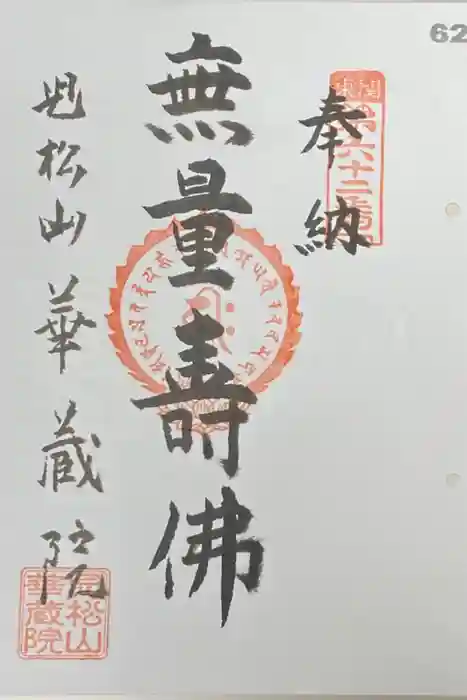 62
関東
第六十二番
奉納
無量壽佛
児松山 華蔵院
児松山
華蔵院